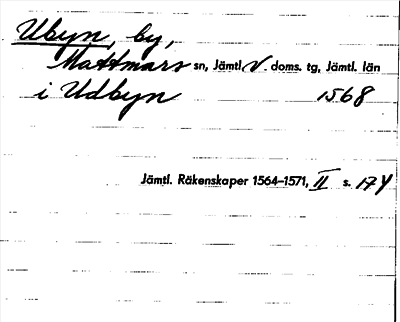 Ubyn, by,
Mattmars sn, Jämtl. V. doms. tg, Jämtl. län
i Udbyn 1568
Jämtl. Räkenskaper 1564–1571, II s. 174